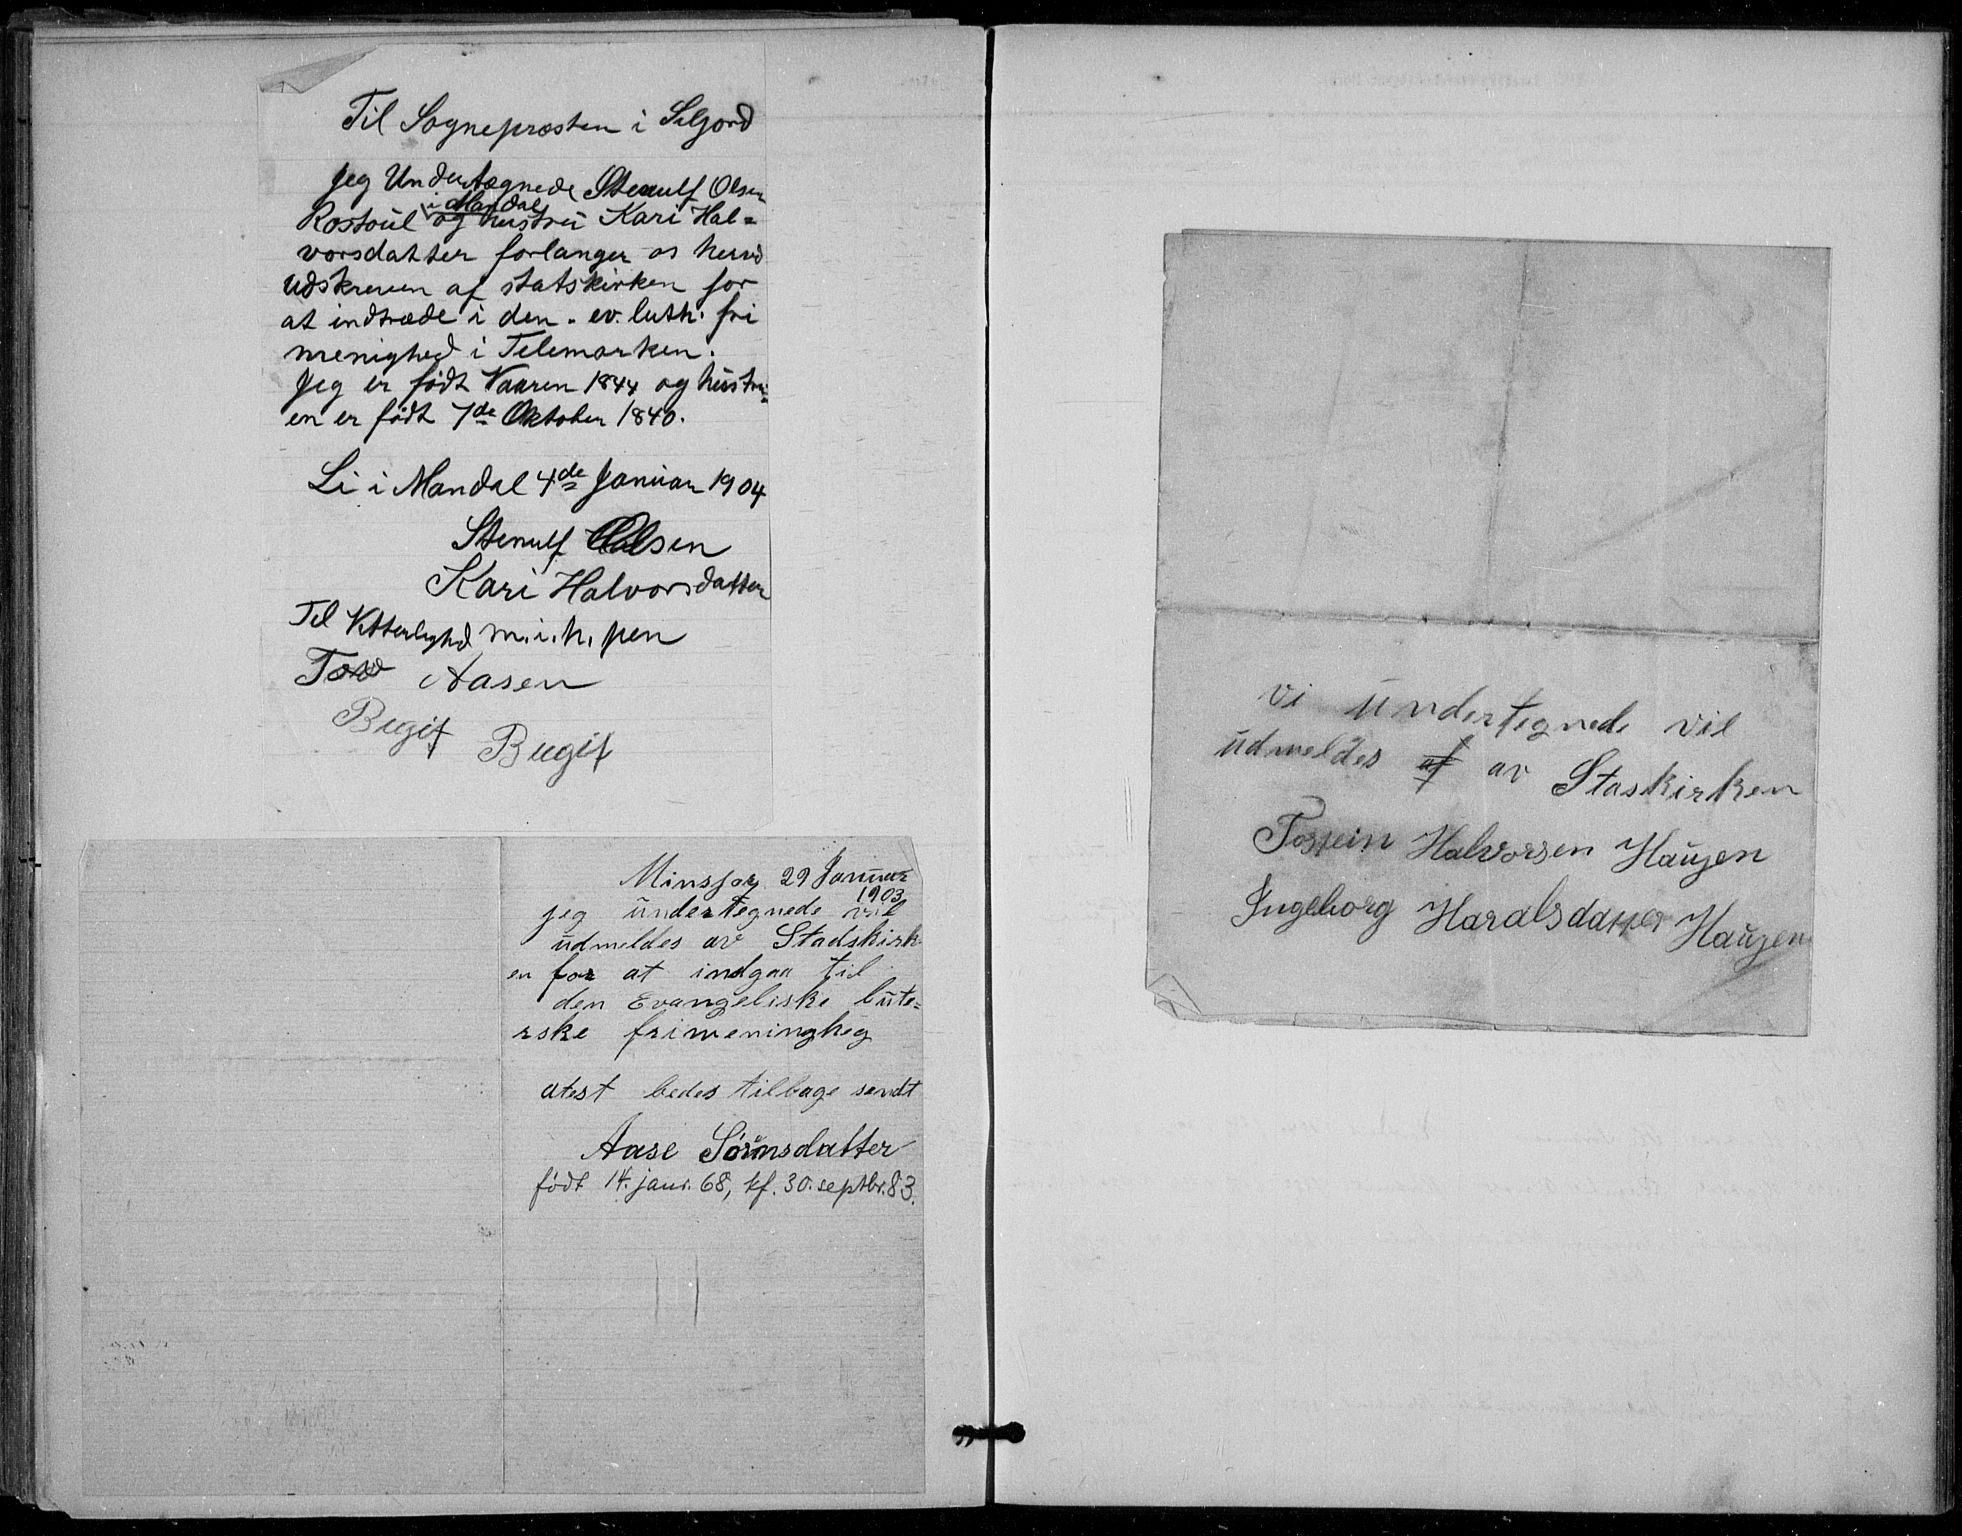 Til Sognepræsten i Seljord
Jeg Undertægnede Stenulf Olsen
i Mandal
Rostøul og hustru Kari Hal=
vorsdatter forlanger os herved
udskreven af statskirken for
at indtræde i den. ev. luth. fri
menighed i Telemarken.
Jeg er født Vaaren 1844 og hustru=
en er født 7de Oktober 1840.
Li i Mandal 4de Januar 1904
Stenulf Olsen
Kari Halvorsdatter
Til Vitterlighed m. i. h. pen
Tov Aasen
Birgit Birgit
29 Januar
1903
jeg undertegnede vil
udmeldes av Stadskirk
en for at indgaa til
den Evangeliske lute=
rske frimeningheg
atest bedes tilbage sendt
Aase Sørinsdatter
født 14. janr. 68, kf. 30. septbr. 83.
Vi undertegnede vil
udmeldes af av Staskirken
Tosjein Halvorsen Haugen
Ingeborg Haralsdatter Haugen